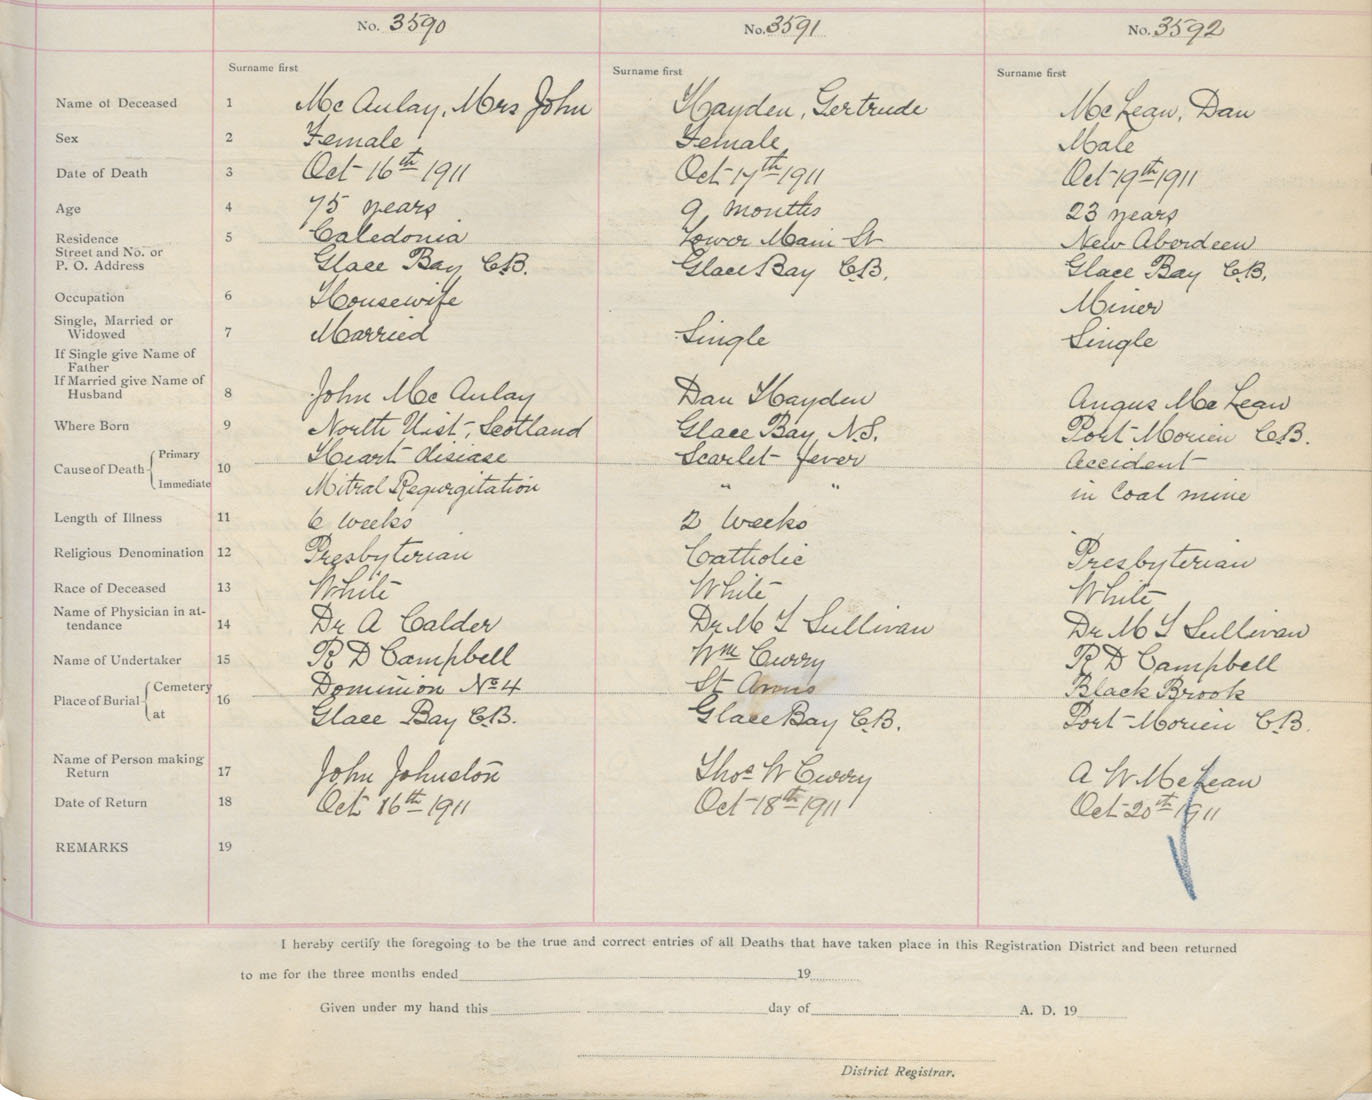 No. 3590 No. 3591 No. 3592
Surname first Surname first Surname first
Name of Deceased 1 Mc Aulay, Mrs John Hayden, Gertrude McLean, Dan
Sex 2 Female Female Male
Date of Death 3 Oct 16th 1911 Oct 17th 1911 Oct 19th 1911
Age 4 75 years 9 months 23 years
Residence 5 Caledonia Lower Main St New Aberdeen
Street and No. or
P. O. Address Glace Bay C.B. Glace Bay C.B. Glace Bay C.B.
Occupation 6 Housewife Miner
Single, Married or
Widowed 7 Married Single Single
If Single give Name of
Father
If Married give Name of
Husband 8 John Mc Aulay Dan Hayden Angus McLean
Where Born 9 North Uist, Scotland Glace Bay N.S. Port Morien C.B.
Cause of Death 10 Primary Heart disease Scarlet fever Accident
Immediate Mitral Regurgitation " " in Coal mine
Length of Illness 11 6 weeks 2 weeks
Religious Denomination 12 Presbyterian Catholic Presbyterian
Race of Deceased 13 White White White
Name of Physician in at-
tendance 14 Dr A Calder Dr M T Sullivan Dr M T Sullivan
Name of Undertaker 15 R D Campbell Wm Curry R D Campbell
Place of Burial 16 Cemetery Dominion No 4 St Anns Black Brook
at Glace Bay C.B. Glace Bay C.B. Port Morien C.B.
Name of Person making
Return 17 John Johnston Thos W Curry A W McLean
Date of Return 18 Oct 16th 1911 Oct 18th 1911 Oct 20th 1911
REMARKS 19
I hereby certify the foregoing to be the true and correct entries of all Deaths that have taken place in this Registration District and been returned
to me for the three months ended 19
Given under my hand this day of A. D. 19
District Registrar.